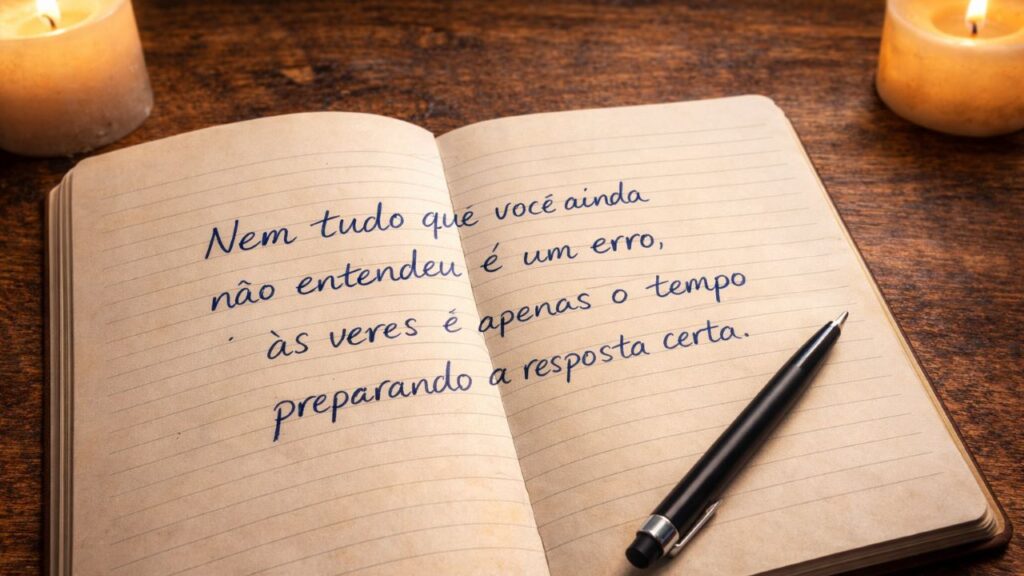 Nem tudo qué você ainda
não entendeu é um erro,
às veres é apenas o tempo
preparando a resposta certa.